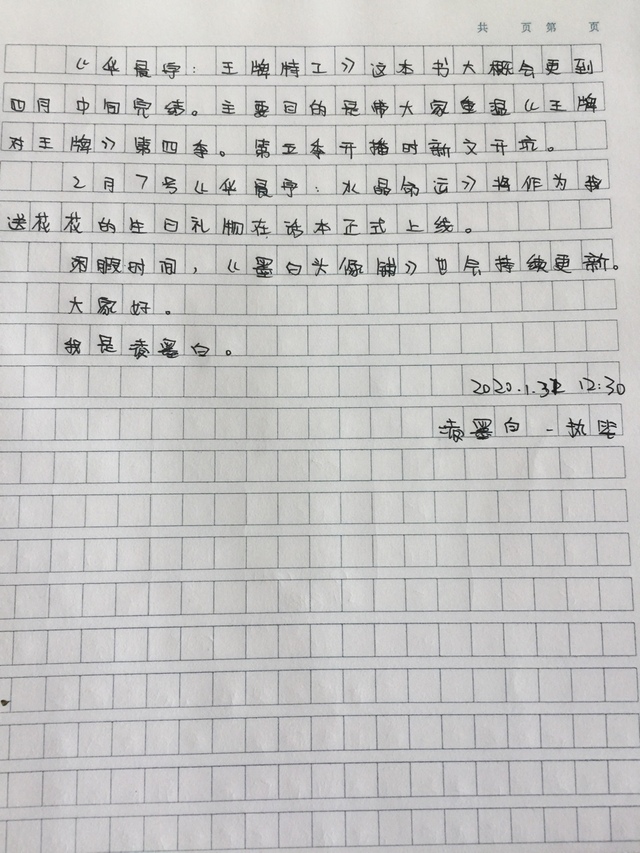 共 页 第 页
《华晨宇:王牌特工》这本书大概会更到
四月中间完结。主要目的是带大家重温《王牌
对王牌》第四季。第五季开播时新文开坑。
2月7号《华晨宇:水晶命运》将作为我
送花花的生日礼物在话本正式上线。
闲暇时间,《墨白头像铺》也会持续更新。
大家好。
我是凌墨白。
2020.1.31 12:30
凌墨白 - 执笔